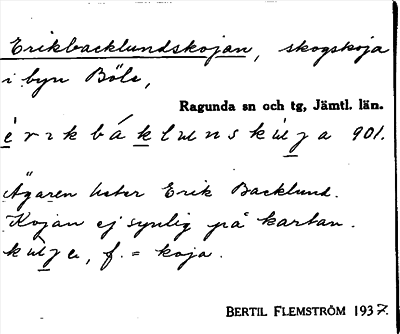 Erikbacklundskojan, skogskoja
i byn Böle,
Ragunda sn och tg, Jämtl. län.
è r ı k b á k l u n s k ù ȷ a 901.
Ägaren heter Erik Backlund.
Kojan ej synlig på kartan.
f. = koja.
BERTIL FLEMSTRÖM 1937.